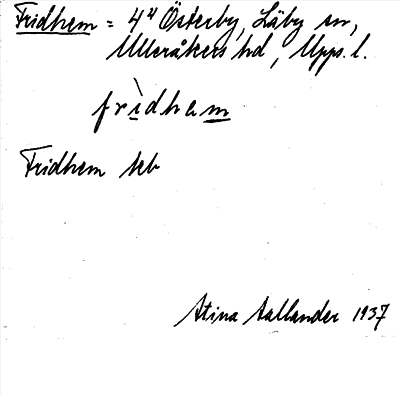 Fridhem = 4⁴ Österby, Läby sn,
Ulleråkers hd, Upps. l.
fri̲dhem̲
Fridhem teb
Stina Aallander 1937